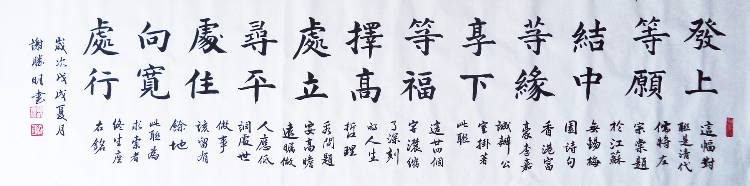 發上
等願
結中
等緣
享下
等福
擇高
處立
尋平
處住
向寬
處行
這幅對
聯是清代
儒將左
宗棠題
於江蘇
無錫梅
園詩句
香港富
豪李嘉
誠辦公
室掛著
此聯
這廿四個
字濃縮
了深刻
的人生
哲理
看問題
要高瞻
遠矚做
人應低
調處世
做事
該留有
餘地
此聯為
求索者
終生座
右銘
歲次戊戌夏月
謝勝書